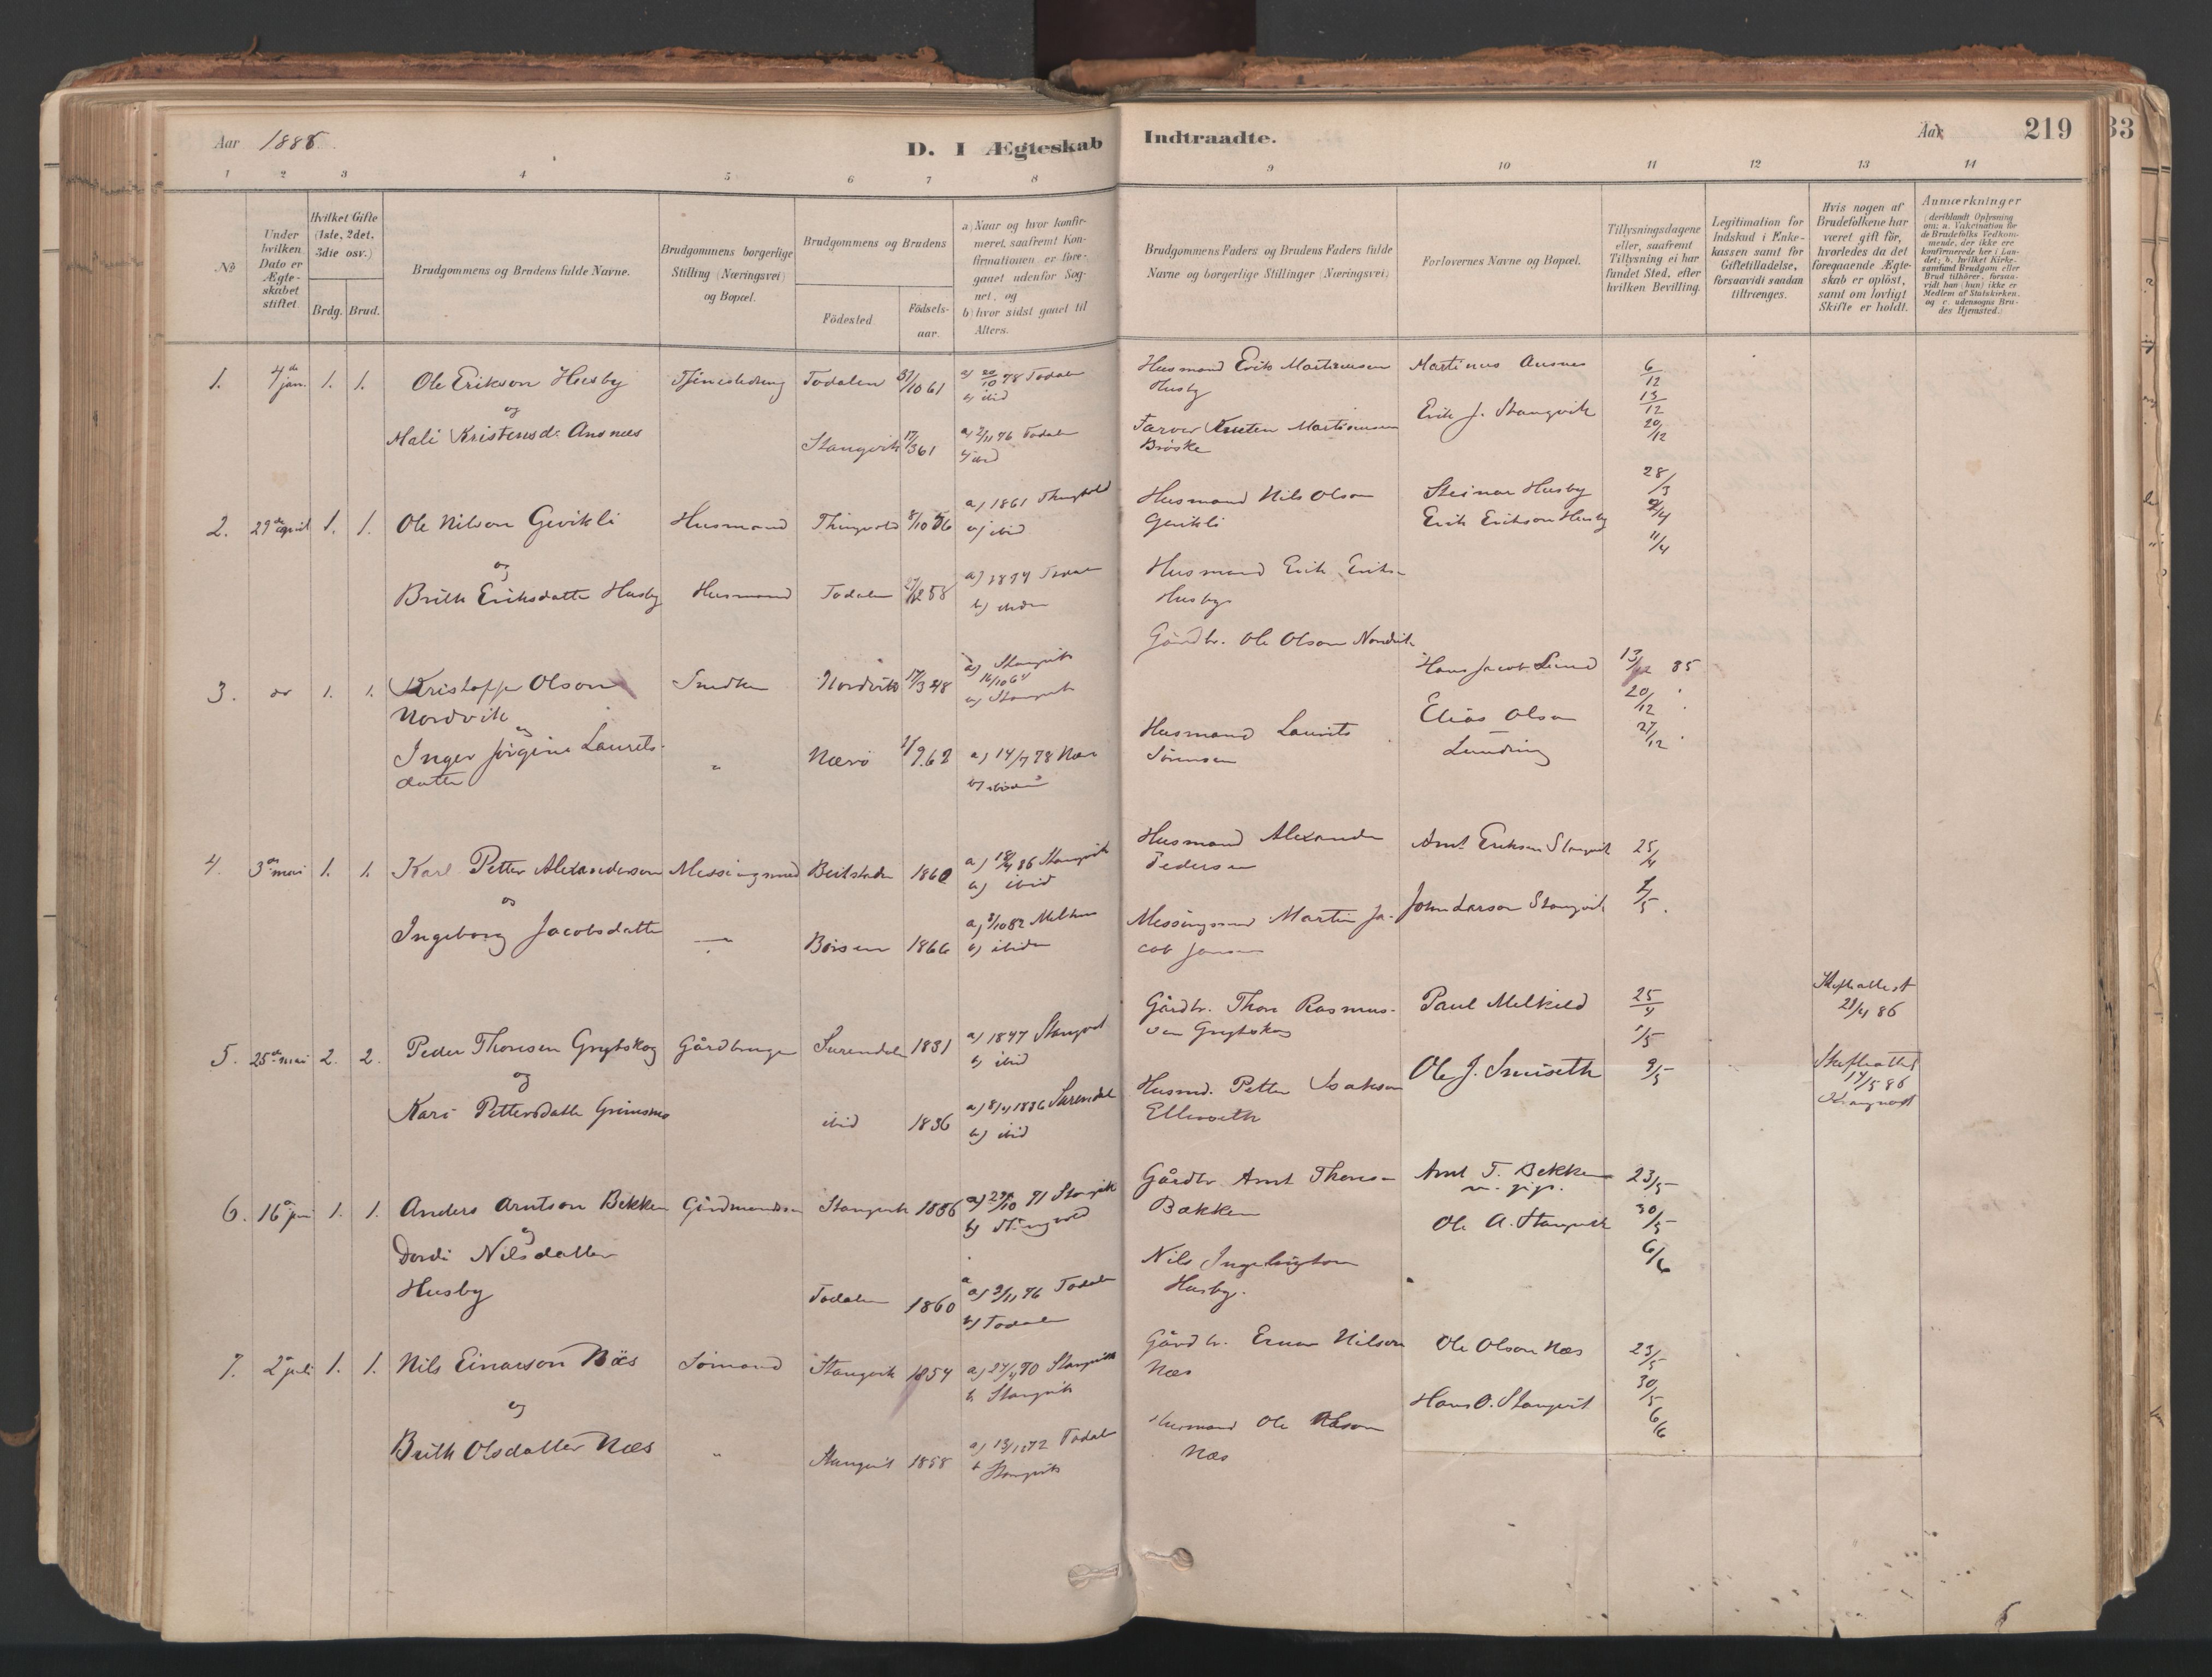 Aar 1886.
D. I Ægteskab Indtraadte.
Aar
219
33
1 2 3 4 5 6 7 8 9 10 11 12 13 14
No
Under hvilken Dato er Ægteskabet stiftet.
Hvilket Gifte (1ste, 2det. 3die osv.)
Brdg. Brud.
Brudgommens og Brudens fulde Navne.
Brudgommens borgerlige Stilling (Næringsvei) og Bopæl.
Brudgommens og Brudens
Födested
Födselsaar.
a) Naar og hvor konfirmeret, saafremt Konfirmationen er foregaaet udenfor Sognet, og
b) hvor sidst gaaet til Alters.
Brudgommens Faders og Brudens Faders fulde Navne og borgerlige Stillinger (Næringsvei)
Forlovernes Navne og Bopæl.
Tillysningsdagene eller, saafremt Tillysning ei har fundet Sted, efter hvilken Bevilling.
Legitimation for Indskud i Enkekassen samt for Giftetilladelse, forsaavidt saadan tiltrænges.
Hvis nogen af Brudefolkene har været gift før, hvorledes da det foregaaende Ægteskab er oplöst, samt om lovligt Skifte er holdt.
Anmærkninger
(deriblandt Oplysning om: a. Vakcination for de Brudefolks Vedkommende, der ikke ere konfirmerede her i Landet; b. hvilket Kirkesamfund Brudgom eller Brud tilhörer, forsaavidt han (hun) ikke er Medlem af Statskirken, og c. udensogns Brudes Hjemsted.)
1. 4de jan. 1. 1. Ole Erikson Husby Todalen 31/10 61 a) 20/10 78 Todalen b) ibid
Husmand Erik Martinusen Husby Martinus Ansnes 6/12
og
Mali Kristensd. Ansnes Stangvik 17/3 61 a) 2/11 76 Todalen b) ibid
Martinusen Brøske Erik J. Stangvik 13/12 20/12
2. 29de april 1. 1. Ole Nilson Gevikli Husmand Thingvold 8/10 56 a) 1861 Thingvold b) ibid
Husmand Nils Olson Gevikli Steinar Husby 28/3
Erik Erikson Husby 11/4
og
Brith Eriksdatter Husby Husmand Todalen 58 a) 1874 Todalen b) ibidem
Husmand Erik Eriks Husby
3. do 1. 1. Kristoffer Olson Nordvik Smedken Nordvik 17/3 48 a) Stangvik 16/10 64 b) Stangvik
Gårdbr. Ole Olson Nordvik Hans Jacob Lund 13/12 85
og
Inger Jørgine Laurits-
datter " Nærö 62 a) 14/7 78 Nær b) ibidem
Husmand Laurits Sörensen Elias Olsen 20/12 27/12
4. 3die mai 1. 1. Karl Petter Alexanderson Messingsmed Beitstaden 1860 a) 86 Stangvik b) ibid
Husmand Alexander Pedersen Arnt Erikson Stangvik 25/4
og
Ingeborg Jacobsdatter " Börsen 1866 a) 1/10 82 b) ibidem
Messingsmed Martin Jacob Jansen John Larson Stangvik 2/5
5. 25de mai 2. 2. Peder Thoresen Grytskog Gårdbruger Surendalen 1831 a) 1847 Stangvik b) ibid
Gårdbr. Thore Rasmus-
sen Grytskog Paul Melkild 25/4 1/5 Skifteattest 21/4 86
og
Kari Pettersdatter Grimsmo ibid 1836 a) 1836 Surendal b) ibid
Husmd. Petter Isaksen Ellevseth Ole J. Smiseth 9/5 Skifteattest 14/5 86
6. 16de juni 1. 1. Anders Arntson Bekken Gårdmandssøn Stangvik 1856 a) 29/10 71 Stangvik b) Stangvold
Gårdbr. Arnt Thores Bakken Arnt T. Bekken 23/5
og
Dordi Nilsdatter Husby Todalen 1860 a) 3/11 76 Todalen b) Todalen
Nils Ingebrigtson Husby. Ole A. Stangvik 30/5 6/6
7. 2den juli 1. 1. Nils Einarson Næs Sömand Stangvik 1854 a) 27/4 70 Stangvik b Stangvik
Gårdbr. Einar Nilson Næs Ole Olson Næs 23/5
og
Brith Olsdatter Næs " Stangvik 1858 a) 13/11 72 Todalen b Stangvik
Husmand Ole Næs Hans O. Stangvik 30/5 6/6